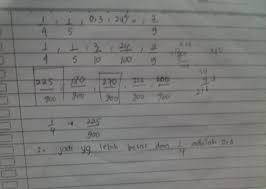 1/4, 1/5, 0,3, 24%, 2/9
1/4, 1/5, 3/10, 24/100, 2/9
225/900, 180/900, 270/900, 200/900
1/4 → 225/900
∴ jadi yg lebih besar dari 1/4 adalah 0,3